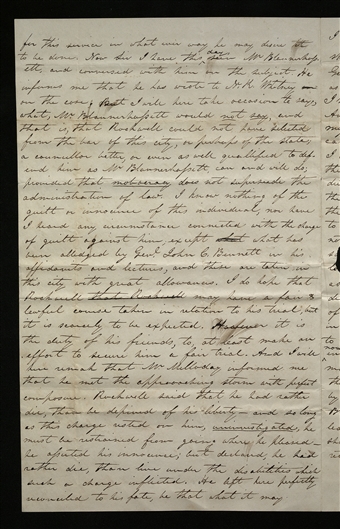 for this service in what ever way he may desire it
to be done. Now Sir I have this day seen Mr Blennerhass-
ett, and conversed with him on the subject. He
informs me that he has wrote to H. R. Hotchkiss
on the case; But I will here take occasion to say,
what, Mr Blannerhassett would not say, and
that is, that Rockwell could not have selected
from the bar of this city, or perhaps of the state,
a councillor better or even as well qualified to def-
end him as Mr Blannerhassett can and will do,
provided that mobocracy does not supersede the
administration of law. I know nothing of the
guilt or innocence of this individual, nor have
I heard any circumstance connected with the charge
of guilt against him, except what has
been alledged by Genl John C. Bennett in his
affidavits and lectures, and these are taken in
this city with great allowances. I do hope that
Rockwell may have a fair &
lawful course taken in relation to his trial, but
it is scarcely to be expected. However it is
the duty of his friends, to, at least make an
effort to secure him a fair trial. And I will
here remark that Mr Melladay informed me
that he met the approaching storm with perfect
composure. Rockwell said that he had rather
die, than be deprived of his liberty – and so long
as this charge rested on him, uninvestigated, he
must be restrained from going where he pleased –
he asserted his innocence; but declared he had
rather die, than live under the disabilities which
such a charge inflicted. He left here perfectly
reconciled to his fate, be that what it may